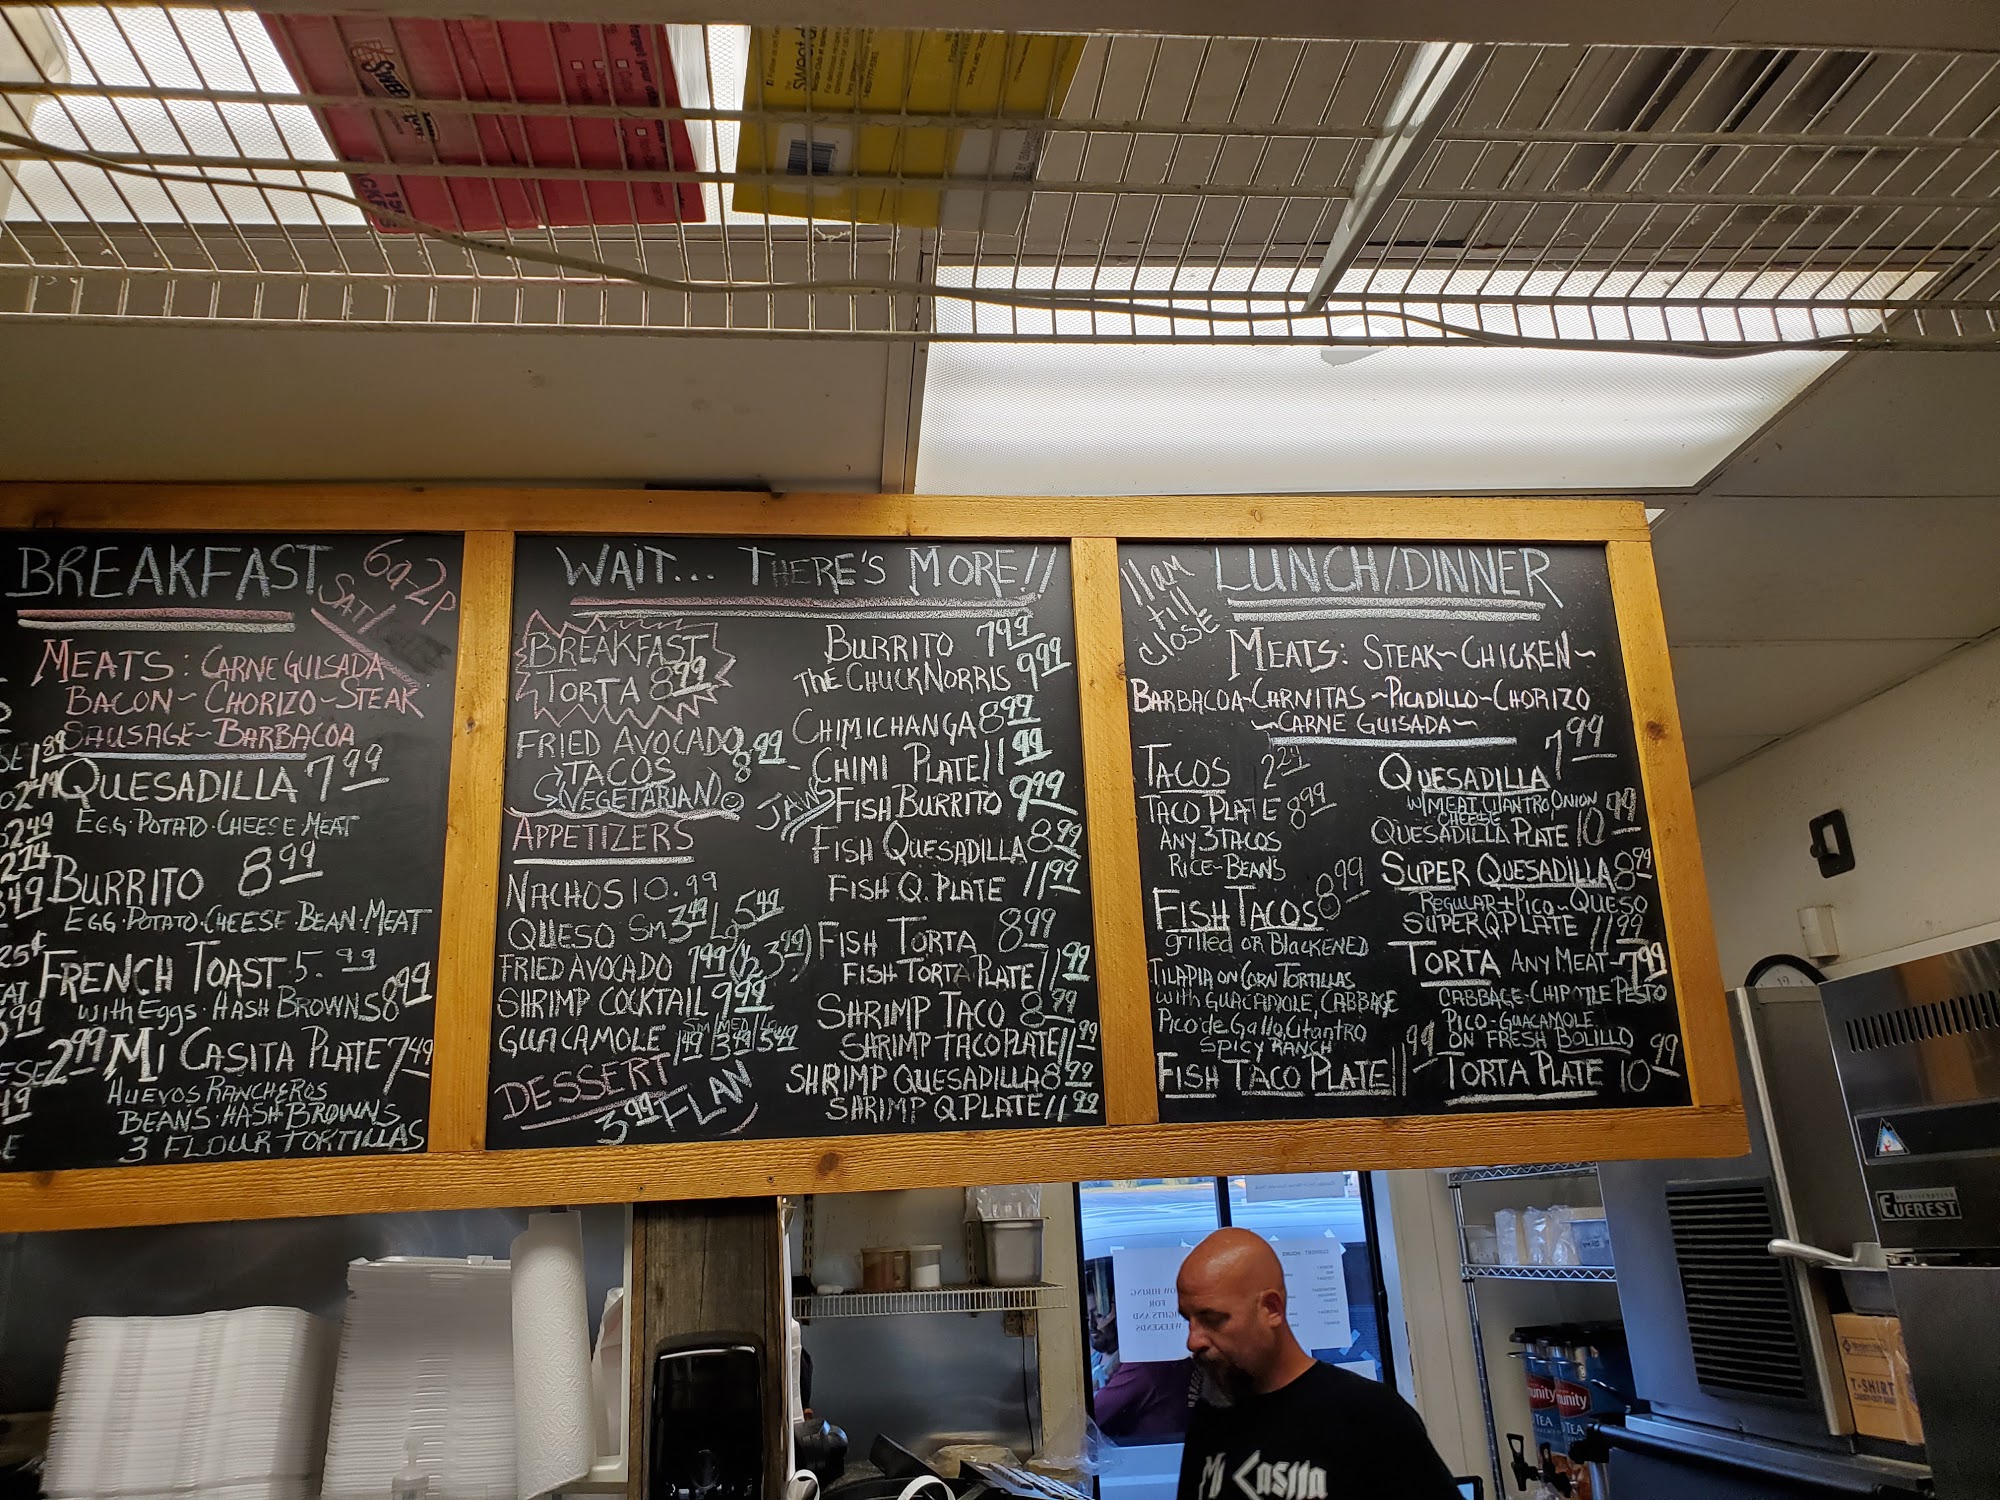 BREAKFAST
6a-2p
SAT/
MEATS: CARNE GUISADA
BACON~ CHORIZO~STEAK
SAUSAGE~BARBACOA
QUESADILLA 7.99
EGG·POTATO·CHEESE·MEAT
BURRITO 8.99
EGG·POTATO·CHEESE·BEAN·MEAT
FRENCH TOAST 5.99
with Eggs·HASH BROWNS 8.99
2.99
MI CASITA PLATE 7.49
HUEVOS RANCHEROS
BEANS·HASH BROWNS
3 FLOUR TORTILLAS
WAIT... THERE'S MORE!!
BREAKFAST
TORTA 8.99
FRIED AVOCADO 8.99
→TACOS
(VEGETARIAN)
APPETIZERS
NACHOS 10.99
QUESO Sm 3.49 Lg 5.49
FRIED AVOCADO 7.99 (½ 3.99)
SHRIMP COCKTAIL 9.99
SM/MED/LG
GUACAMOLE 1.49/3.49/5.49
DESSERT
3.99 FLAN
BURRITO 7.99
THE CHUCK NORRIS 9.99
CHIMICHANGA 8.99
- CHIMI PLATE 11.99
JAWS FISH BURRITO 9.99
FISH QUESADILLA 8.99
FISH Q. PLATE 11.99
FISH TORTA 8.99
FISH TORTA PLATE 11.99
SHRIMP TACO 8.99
SHRIMP TACO PLATE 11.99
SHRIMP QUESADILLA 8.99
SHRIMP Q. PLATE 11.99
11am
till
close
LUNCH/DINNER
MEATS: STEAK~CHICKEN~
BARBACOA~CARNITAS~PICADILLO~CHORIZO
~CARNE GUISADA~
TACOS
TACO PLATE 8.99
ANY 3 TACOS
RICE~BEANS
FISH TACOS 8.99
grilled OR BLACKENED
TILAPIA ON CORN TORTILLAS
with GUACAMOLE, CABBAGE
PICO de GALLO, CILANTRO
SPICY RANCH
FISH TACO PLATE 11.99
QUESADILLA 7.99
W/MEAT, CILANTRO, ONION
CHEESE
QUESADILLA PLATE 10.99
SUPER QUESADILLA 8.99
REGULAR + PICO~QUESO
SUPER Q. PLATE 11.99
TORTA ANY MEAT~7.99
CABBAGE·CHIPOTLE PESTO
PICO·GUACAMOLE
ON FRESH BOLILLO
TORTA PLATE 10.99
EVEREST
NOW HIRING
FOR
NIGHTS AND
WEEKENDS
T-SHIRT
TEA
TEA
Mi Casita